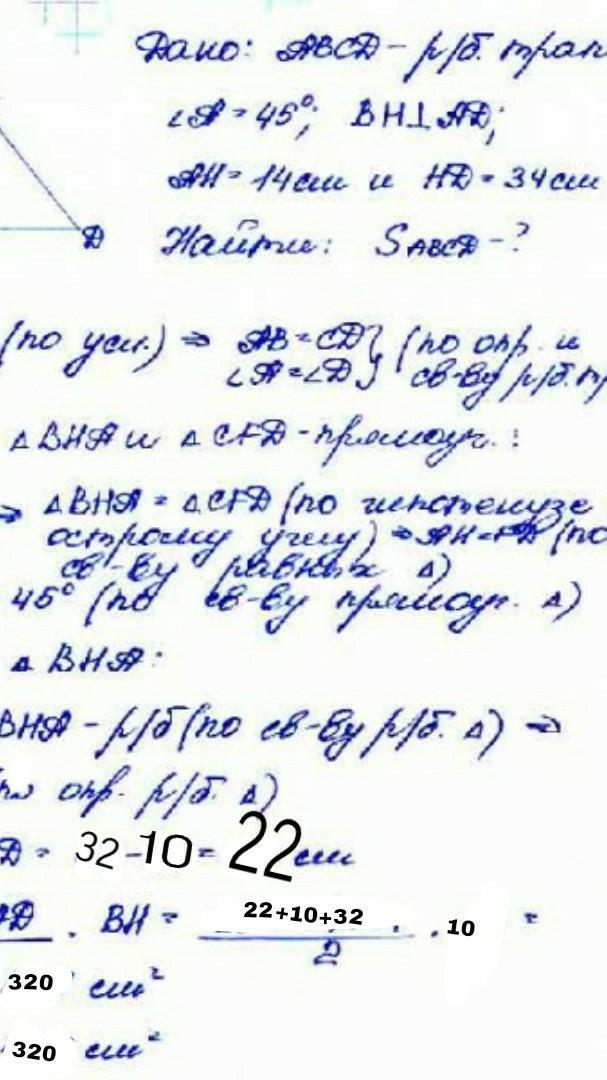 Дано: ABCD - р/б. трап
∠A = 45°; BH⊥AD;
AH = 14 см и HD = 34 см
D
Найти: SABCD - ?
(по усл.) ⇒ AB = CD} (по опр. и
∠A = ∠D} св-ву р/б. тр
△BHA и △CFD - прямоуг.:
⇒ △BHA = △CFD (по гипотенузе
острому углу) ⇒ AH = FD (по
св-ву равных △)
45° (по св-ву прямоуг. △)
△BHA:
BHA - р/б (по св-ву р/б. △) ⇒
по опр. р/б. △)
D = 32-10 = 22 см
AD · BH = 22+10+32 / 2 · 10 =
320 см²
320 см²